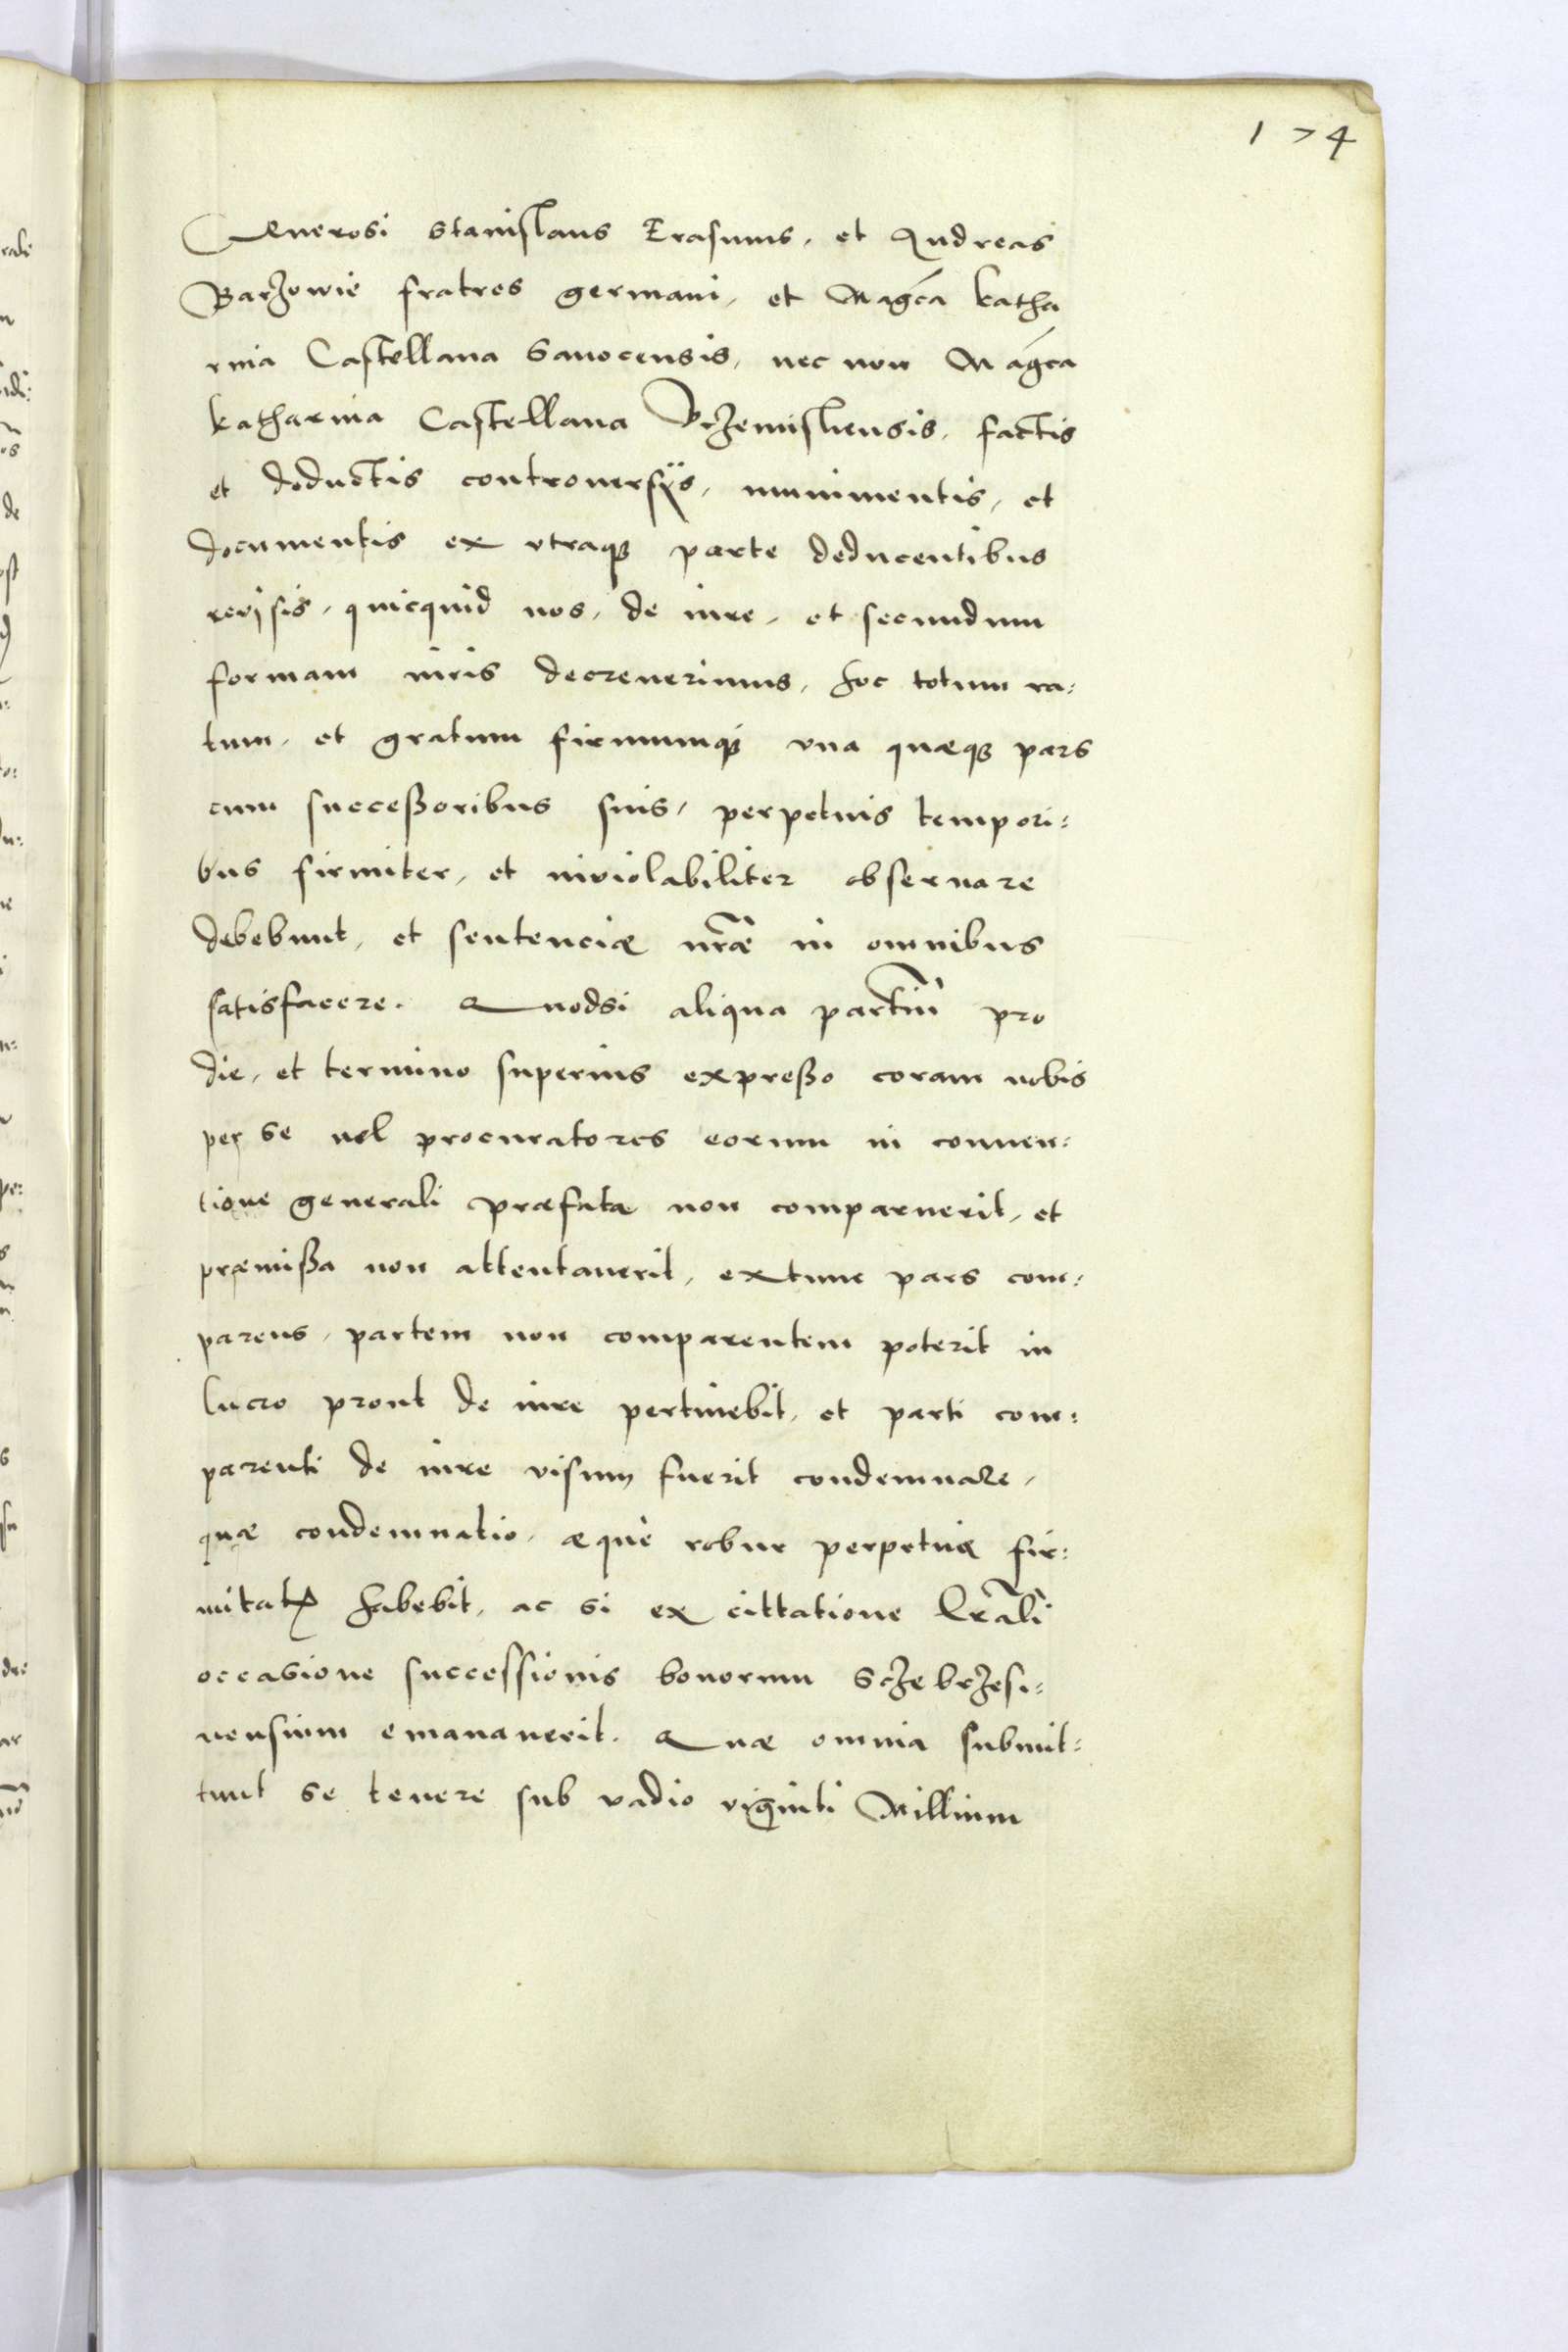 174
Generosi Stanislaus Erasmus, et Andreas
Barzowie fratres germani, et Magca Katha
rina Castellana Sanocensis, nec non Magca
Katharina Castellana Przemisliensis, factis
et deductis controuersijs, munimentis, et
documentis ex vtraq parte deducentibus
revisis, quicquid nos, de iure, et secundum
formam iuris decreuerimus, hoc totum ra:
tum, et gratum firmumq una quæq pars
cum successoribus suis, perpetuis tempori:
bus firmiter, et inviolabiliter obseruare
debebunt, et sentenciæ nræ in omnibus
satisfacere. Quodsi aliqua partiu pro
die, et termino superius expresso coram nobis
per se uel procuratores eorum in conuen:
tione generali præfata non comparuerit, et
præmissa non attentauerit, extunc pars com:
parens, partem non comparentem poterit in
lucro prout de iure pertinebit, et parti com:
parenti de iure visum fuerit condemnare,
quæ condemnatio, æque robur perpetuæ fir:
mitatis habebit, ac si ex cittatione lrali
occasione successionis bonorum Sczebrzesi:
nensium emanauerit. Quæ omnia submit:
tunt se tenere sub vadio viginti Millium
rali
de
pe: